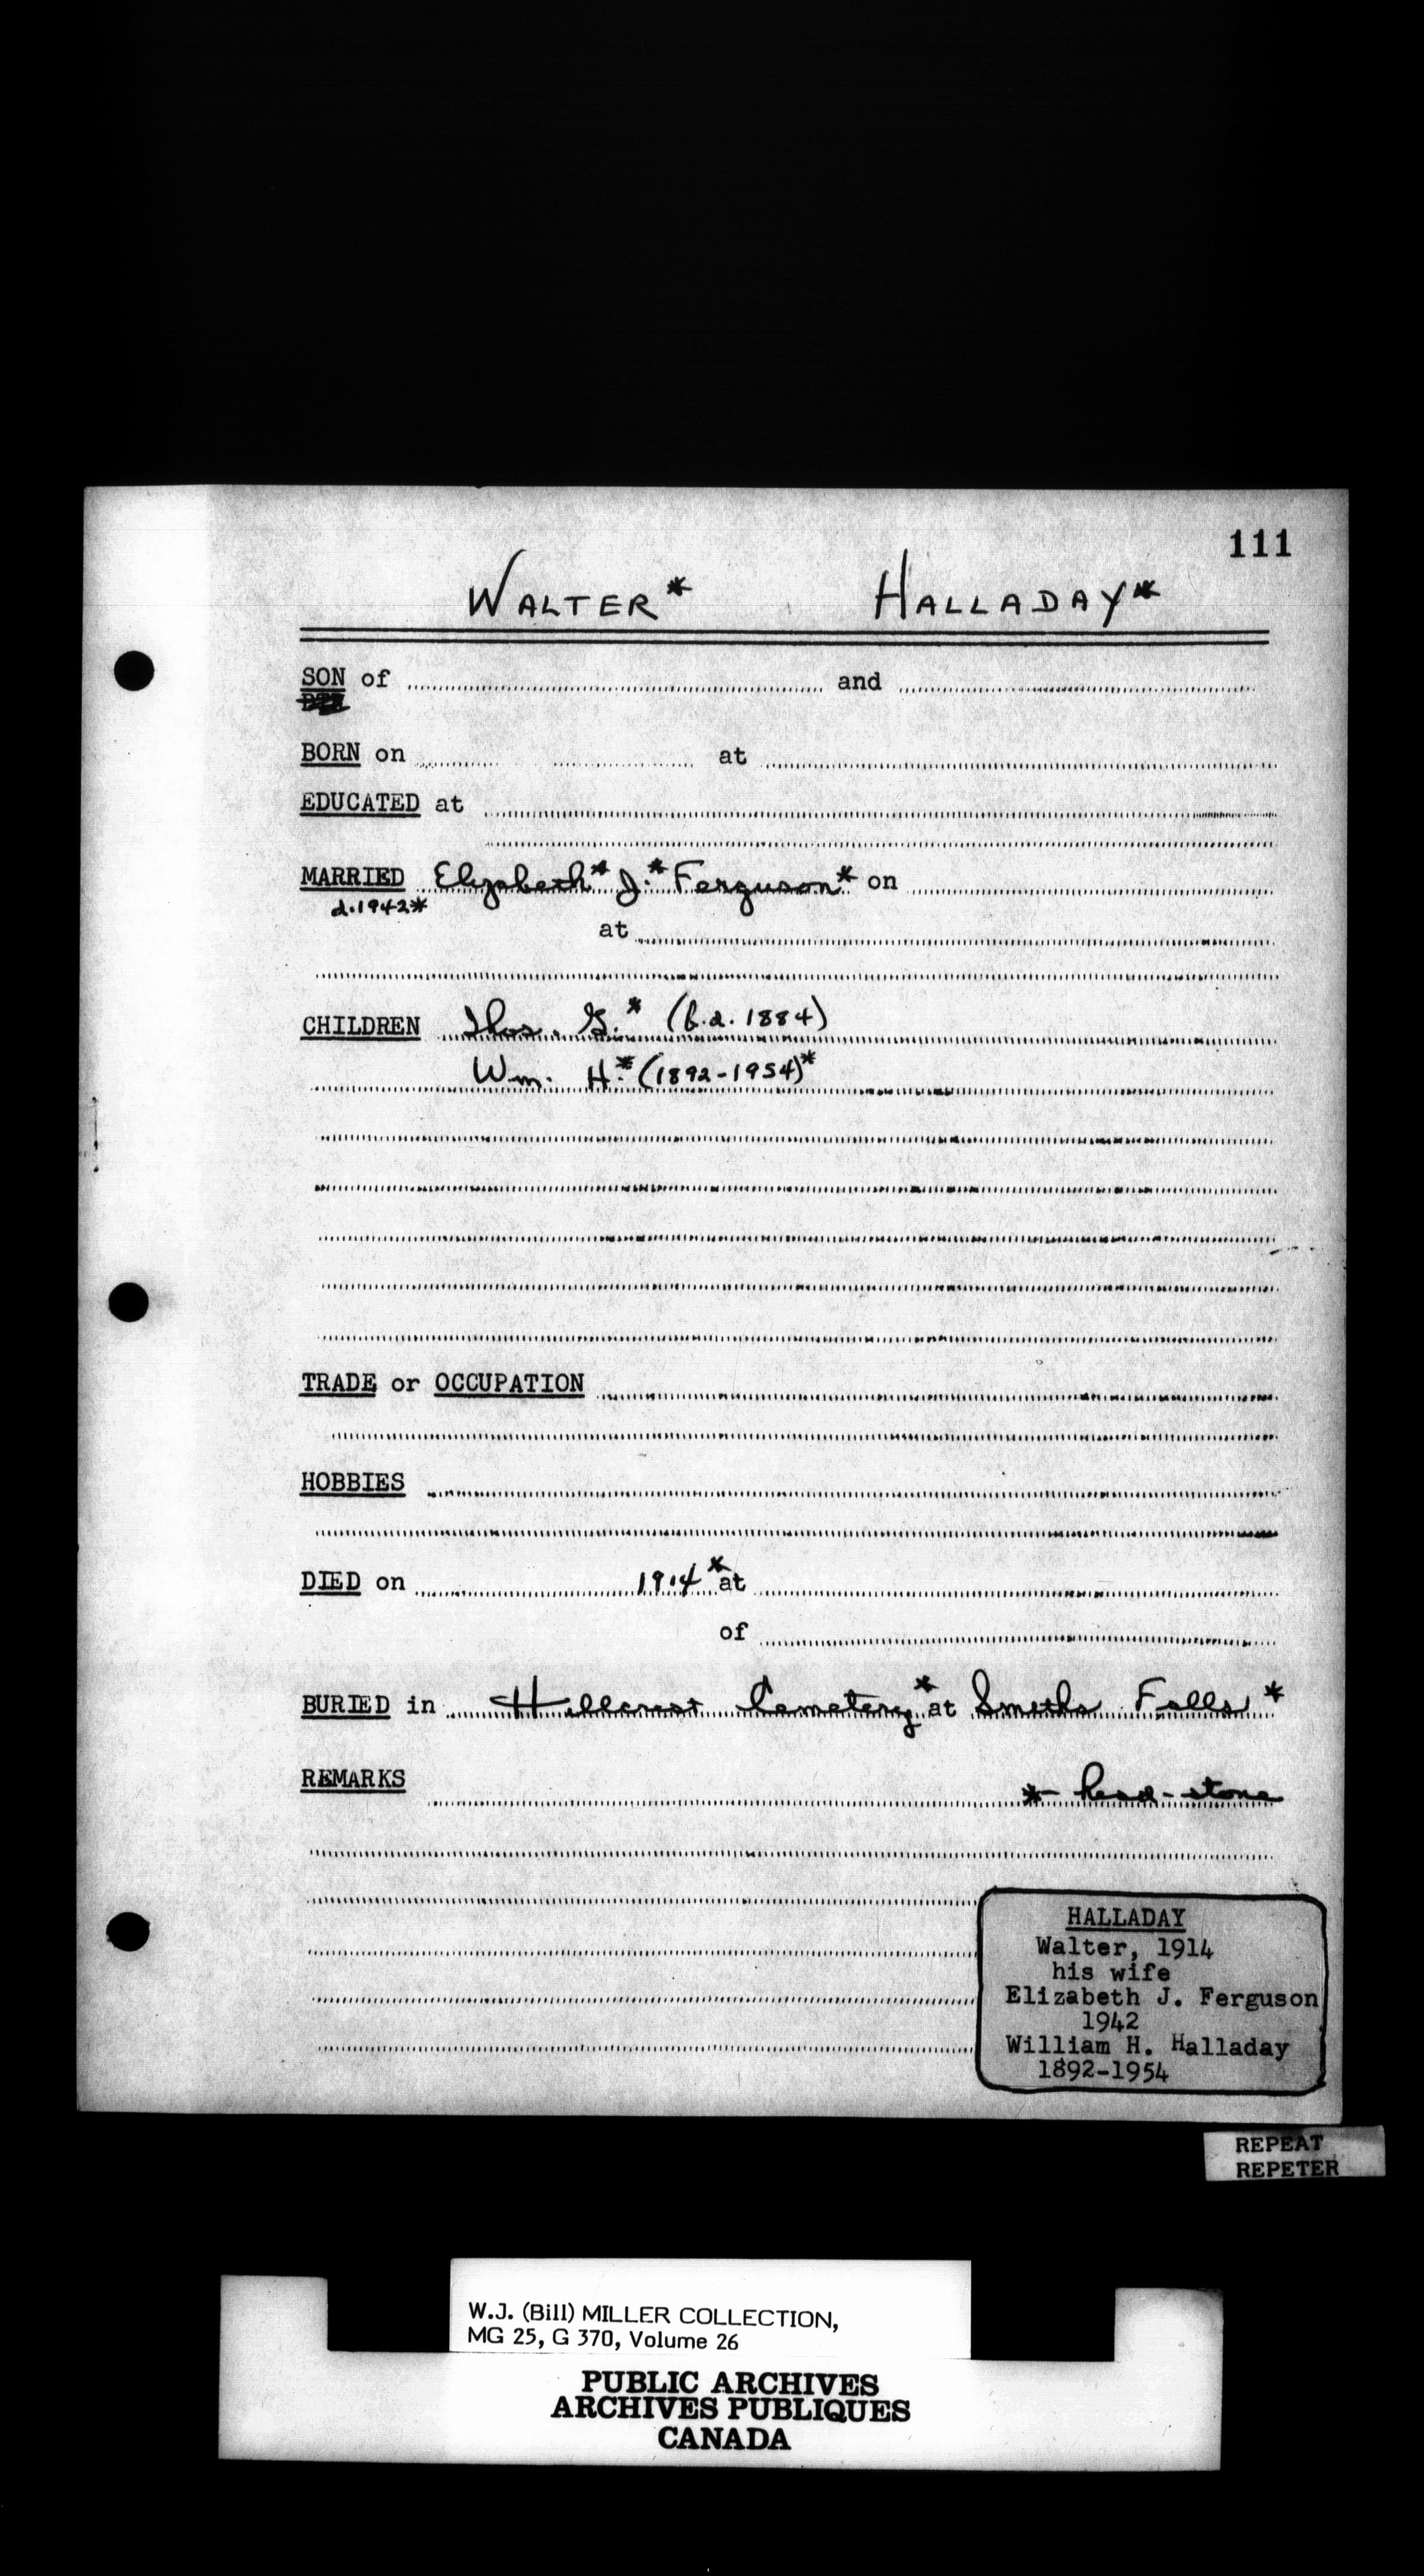 111
WALTER* HALLADAY*
SON of and
BORN on at
EDUCATED at
MARRIED Elizabeth* J.* Ferguson* on
d. 1942*
at
CHILDREN Thos. G.* (b.d. 1884)
Wm. H.* (1892-1954)*
TRADE or OCCUPATION
HOBBIES
DIED on 1914* at
of
BURIED in Hillcrest Cemetery* at Smiths Falls*
REMARKS *- head-stone
HALLADAY
Walter, 1914
his wife
Elizabeth J. Ferguson
1942
William H. Halladay
1892-1954
REPEAT
REPETER
W.J. (Bill) MILLER COLLECTION,
MG 25, G 370, Volume 26
PUBLIC ARCHIVES
ARCHIVES PUBLIQUES
CANADA